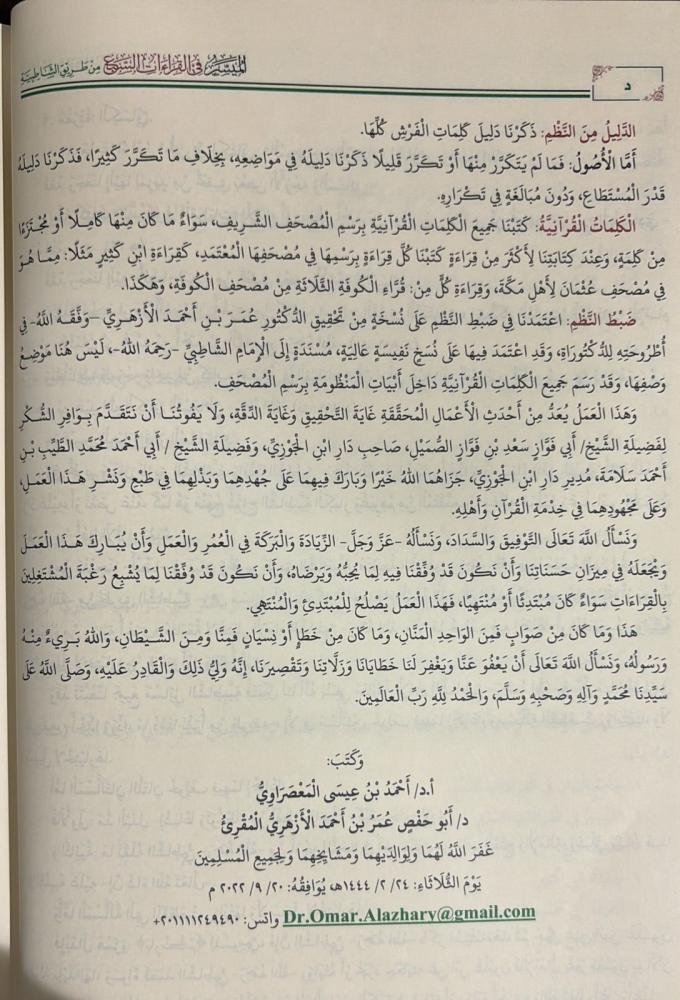 د
المُيَسَّرُ فِي القِرَاءَاتِ السَّبْعِ مِنْ طَرِيقِ الشَّاطِبِيَّةِ
الدَّلِيلُ مِنَ النَّظْمِ: ذَكَرْنَا دَلِيلَ كَلِمَاتِ الْفَرْشِ كُلَّهَا.
أَمَّا الْأُصُولُ: فَمَا لَمْ يَتَكَرَّرْ مِنْهَا أَوْ تَكَرَّرَ قَلِيلًا ذَكَرْنَا دَلِيلَهُ فِي مَوَاضِعِهِ، بِخِلَافِ مَا تَكَرَّرَ كَثِيرًا، فَذَكَرْنَا دَلِيلَهُ
قَدْرَ الْمُسْتَطَاعِ، وَدُونَ مُبَالَغَةٍ فِي تَكْرَارِهِ.
الْكَلِمَاتُ الْقُرْآنِيَّةُ: كَتَبْنَا جَمِيعَ الْكَلِمَاتِ الْقُرْآنِيَّةِ بِرَسْمِ الْمُصْحَفِ الشَّرِيفِ، سَوَاءٌ مَا كَانَ مِنْهَا كَامِلًا أَوْ مُجْتَزَءًا
مِنْ كَلِمَةٍ، وَعِنْدَ كِتَابَتِنَا لِأَكْثَرَ مِنْ قِرَاءَةٍ كَتَبْنَا كُلَّ قِرَاءَةٍ بِرَسْمِهَا فِي مُصْحَفِهَا الْمُعْتَمَدِ، كَقِرَاءَةِ ابْنِ كَثِيرٍ مَثَلًا: مِمَّا هُوَ
فِي مُصْحَفِ عُثْمَانَ لِأَهْلِ مَكَّةَ، وَقِرَاءَةِ كُلٍّ مِنْ: قُرَّاءِ الْكُوفَةِ الثَّلَاثَةِ مِنْ مُصْحَفِ الْكُوفَةِ، وَهَكَذَا.
ضَبْطُ النَّظْمِ: اعْتَمَدْنَا فِي ضَبْطِ النَّظْمِ عَلَى نُسْخَةٍ مِنْ تَحْقِيقِ الدُّكْتُورِ عُمَرَ بْنِ أَحْمَدَ الْأَزْهَرِيِّ –وَفَّقَهُ اللهُ- فِي
أُطْرُوحَتِهِ لِلدُّكْتُورَاةِ، وَقَدِ اعْتَمَدَ فِيهَا عَلَى نُسَخٍ نَفِيسَةٍ عَالِيَةٍ، مُسْنَدَةٍ إِلَى الْإِمَامِ الشَّاطِبِيِّ -رَحِمَهُ اللهُ-، لَيْسَ هُنَا مَوْضِعُ
وَصْفِهَا، وَقَدْ رَسَمَ جَمِيعَ الْكَلِمَاتِ الْقُرْآنِيَّةِ دَاخِلَ أَبْيَاتِ الْمَنْظُومَةِ بِرَسْمِ الْمُصْحَفِ.
وَهَذَا الْعَمَلُ يُعَدُّ مِنْ أَحْدَثِ الْأَعْمَالِ الْمُحَقَّقَةِ غَايَةَ التَّحْقِيقِ وَغَايَةَ الدِّقَّةِ، وَلَا يَفُوتُنَا أَنْ نَتَقَدَّمَ بِوَافِرِ الشُّكْرِ
لِفَضِيلَةِ الشَّيْخِ/ أَبِي فَوَّازٍ سَعْدِ بْنِ فَوَّازٍ الصُّمَيْلِ، صَاحِبِ دَارِ ابْنِ الْجَوْزِيِّ، وَفَضِيلَةِ الشَّيْخِ / أَبِي أَحْمَدَ مُحَمَّدِ الطَّيِّبِ بْنِ
أَحْمَدَ سَلَامَةَ، مُدِيرِ دَارِ ابْنِ الْجَوْزِيِّ، جَزَاهُمَا اللهُ خَيْرًا وَبَارَكَ فِيهِمَا عَلَى جُهْدِهِمَا وَبَذْلِهِمَا فِي طَبْعِ وَنَشْرِ هَذَا الْعَمَلِ،
وَعَلَى مَجْهُودِهِمَا فِي خِدْمَةِ الْقُرْآنِ وَأَهْلِهِ.
وَنَسْأَلُ اللهَ تَعَالَى التَّوْفِيقَ وَالسَّدَادَ، وَنَسْأَلُهُ -عَزَّ وَجَلَّ- الزِّيَادَةَ وَالْبَرَكَةَ فِي الْعُمُرِ وَالْعَمَلِ وَأَنْ يُبَارِكَ هَذَا الْعَمَلَ
وَيَجْعَلَهُ فِي مِيزَانِ حَسَنَاتِنَا وَأَنْ نَكُونَ قَدْ وُفِّقْنَا فِيهِ لِمَا يُحِبُّهُ وَيَرْضَاهُ، وَأَنْ نَكُونَ قَدْ وُفِّقْنَا لِمَا يُشْبِعُ رَغْبَةَ الْمُشْتَغِلِينَ
بِالْقِرَاءَاتِ سَوَاءٌ كَانَ مُبْتَدِئًا أَوْ مُنْتَهِيًا، فَهَذَا الْعَمَلُ يَصْلُحُ لِلْمُبْتَدِئِ وَالْمُنْتَهِي.
هَذَا وَمَا كَانَ مِنْ صَوَابٍ فَمِنَ الْوَاحِدِ الْمَنَّانِ، وَمَا كَانَ مِنْ خَطَإٍ أَوْ نِسْيَانٍ فَمِنَّا وَمِنَ الشَّيْطَانِ، وَاللهُ بَرِيءٌ مِنْهُ
وَرَسُولُهُ، وَنَسْأَلُ اللهَ تَعَالَى أَنْ يَعْفُوَ عَنَّا وَيَغْفِرَ لَنَا خَطَايَانَا وَزَلَّاتِنَا وَتَقْصِيرَنَا، إِنَّهُ وَلِيُّ ذَلِكَ وَالْقَادِرُ عَلَيْهِ، وَصَلَّى اللهُ عَلَى
سَيِّدِنَا مُحَمَّدٍ وَآلِهِ وَصَحْبِهِ وَسَلَّمَ، وَالْحَمْدُ لِلَّهِ رَبِّ الْعَالَمِينَ.
وَكَتَبَ:
أ.د/ أَحْمَدُ بْنُ عِيسَى الْمَعْصَرَاوِيُّ
د/ أَبُو حَفْصٍ عُمَرُ بْنُ أَحْمَدَ الْأَزْهَرِيُّ الْمُقْرِئُ
غَفَرَ اللهُ لَهُمَا وَلِوَالِدِيْهِمَا وَمَشَايِخِهِمَا وَلِجَمِيعِ الْمُسْلِمِينَ
يَوْمَ الثُّلَاثَاءِ: ٢٤/ ٢/ ١٤٤٤هـ، يُوَافِقُهُ: ٢٠/ ٩/ ٢٠٢٢ م
Dr.Omar.Alazhary@gmail.com واتس: ٢٠١١١١٢٤٩٤٩٠+